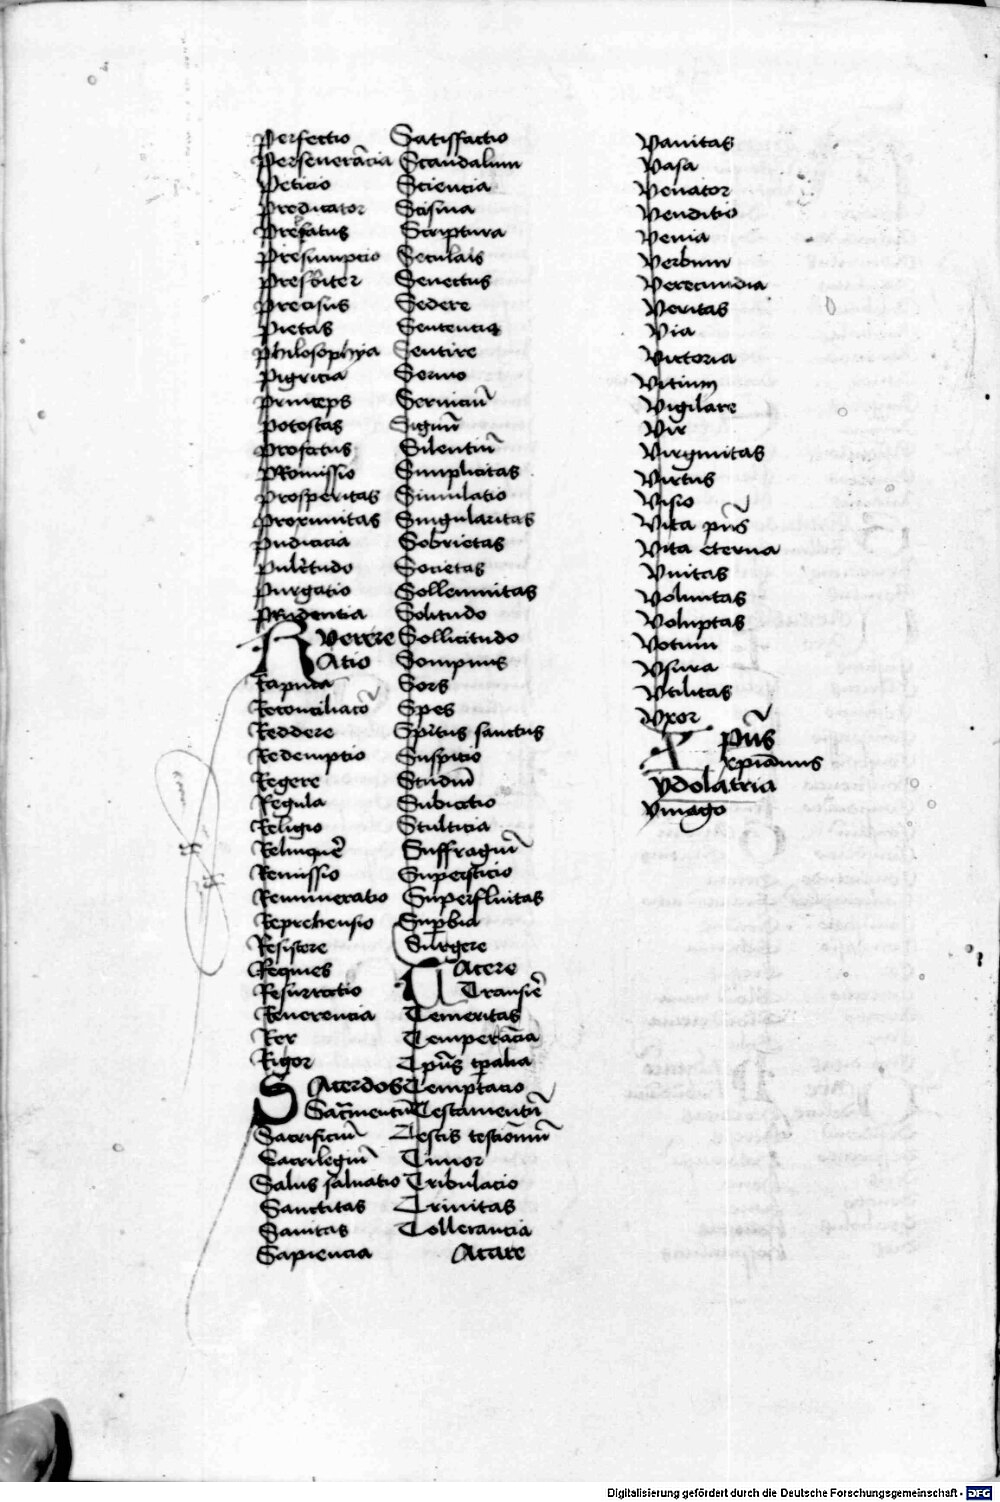 Perfectio
Perseuerācia
Peticio
Predicator
Prelatus
Presumptio
Presbiter
Precisus
Pietas
Philosophya
Pigricia
Princeps
Potestas
Profectus
PRomissio
Prosperitas
Proximitas
Pudicicia
Pulcʳtudo
Purgatio
PRudentia
R verere
Atio
Rapina
Reconciliacō
Reddere
Redemptio
Regere
Regula
Religio
Relinquē
Remissio
Remuneratio
Reprehensio
Resistere
Requies
Resurrectio
Reuerencia
Rex
Rigor
S Acerdos
Sacͣmentū
Sacrificiū
Sacrilegiū
Salus saluatio
Sanctitas
Sanitas
Sapiencia
Satisfactio
Scandalum
Sciencia
Scisma
Scriptura
Secularis
Senectus
Sedere
Sentencia
Sentire
Sermo
Seruiciū
Signū
Silentiū
Simplicitas
Simulatio
Singularitas
Sobrietas
Societas
Sollemnitas
Solitudo
Sollicitudo
Sompnus
Sors
Spes
Spr̄tus sanctus
Suspitio
Studiū
Subiectio
Stulticia
Suffragiū
Supersticio
Superfluitas
Suꝑbia
Surgere
T Acere
Transiē
Temeritas
Temperācia
Tpūs tꝑalia
Temptacio
Testamentū
Testis testiōniū
Timor
Tribulacio
Trinitas
Tollerancia
Acare
Vanitas
Vasa
Venator
Venditio
Venia
Verbum
Verecundia
Veritas
Via
Victoria
Vitium
Vigilare
Vir
Virginitas
Virtus
Visio
Vita pn̄s
Vita eterna
Vnitas
Voluntas
Voluptas
Votum
Vsura
Vtilitas
Vxor
X pūs
xpiānus
ydolatria
ymago
Digitalisierung gefördert durch die Deutsche Forschungsgemeinschaft - DFG